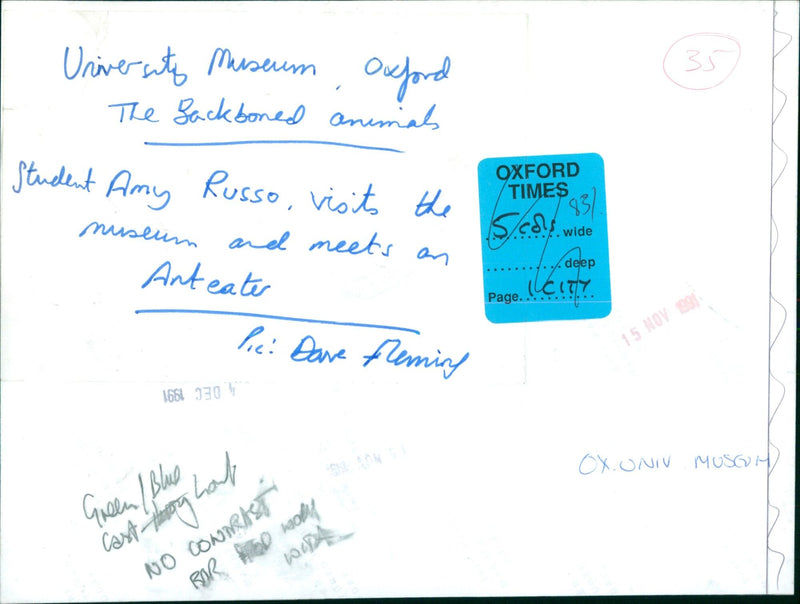 University Museum, Oxford
The Backboned animals
Student Amy Russo, visits the
museum and meets an
Anteater
Pic: Dave Fleming
35
OXFORD
TIMES
831
5 cols wide
deep
Page 1 CITY
15 NOV 1991
4 DEC 1991
OX. UNIV MUSEUM
Green/Blue
cast
NO CONTRAST
FOR WORK
WITH